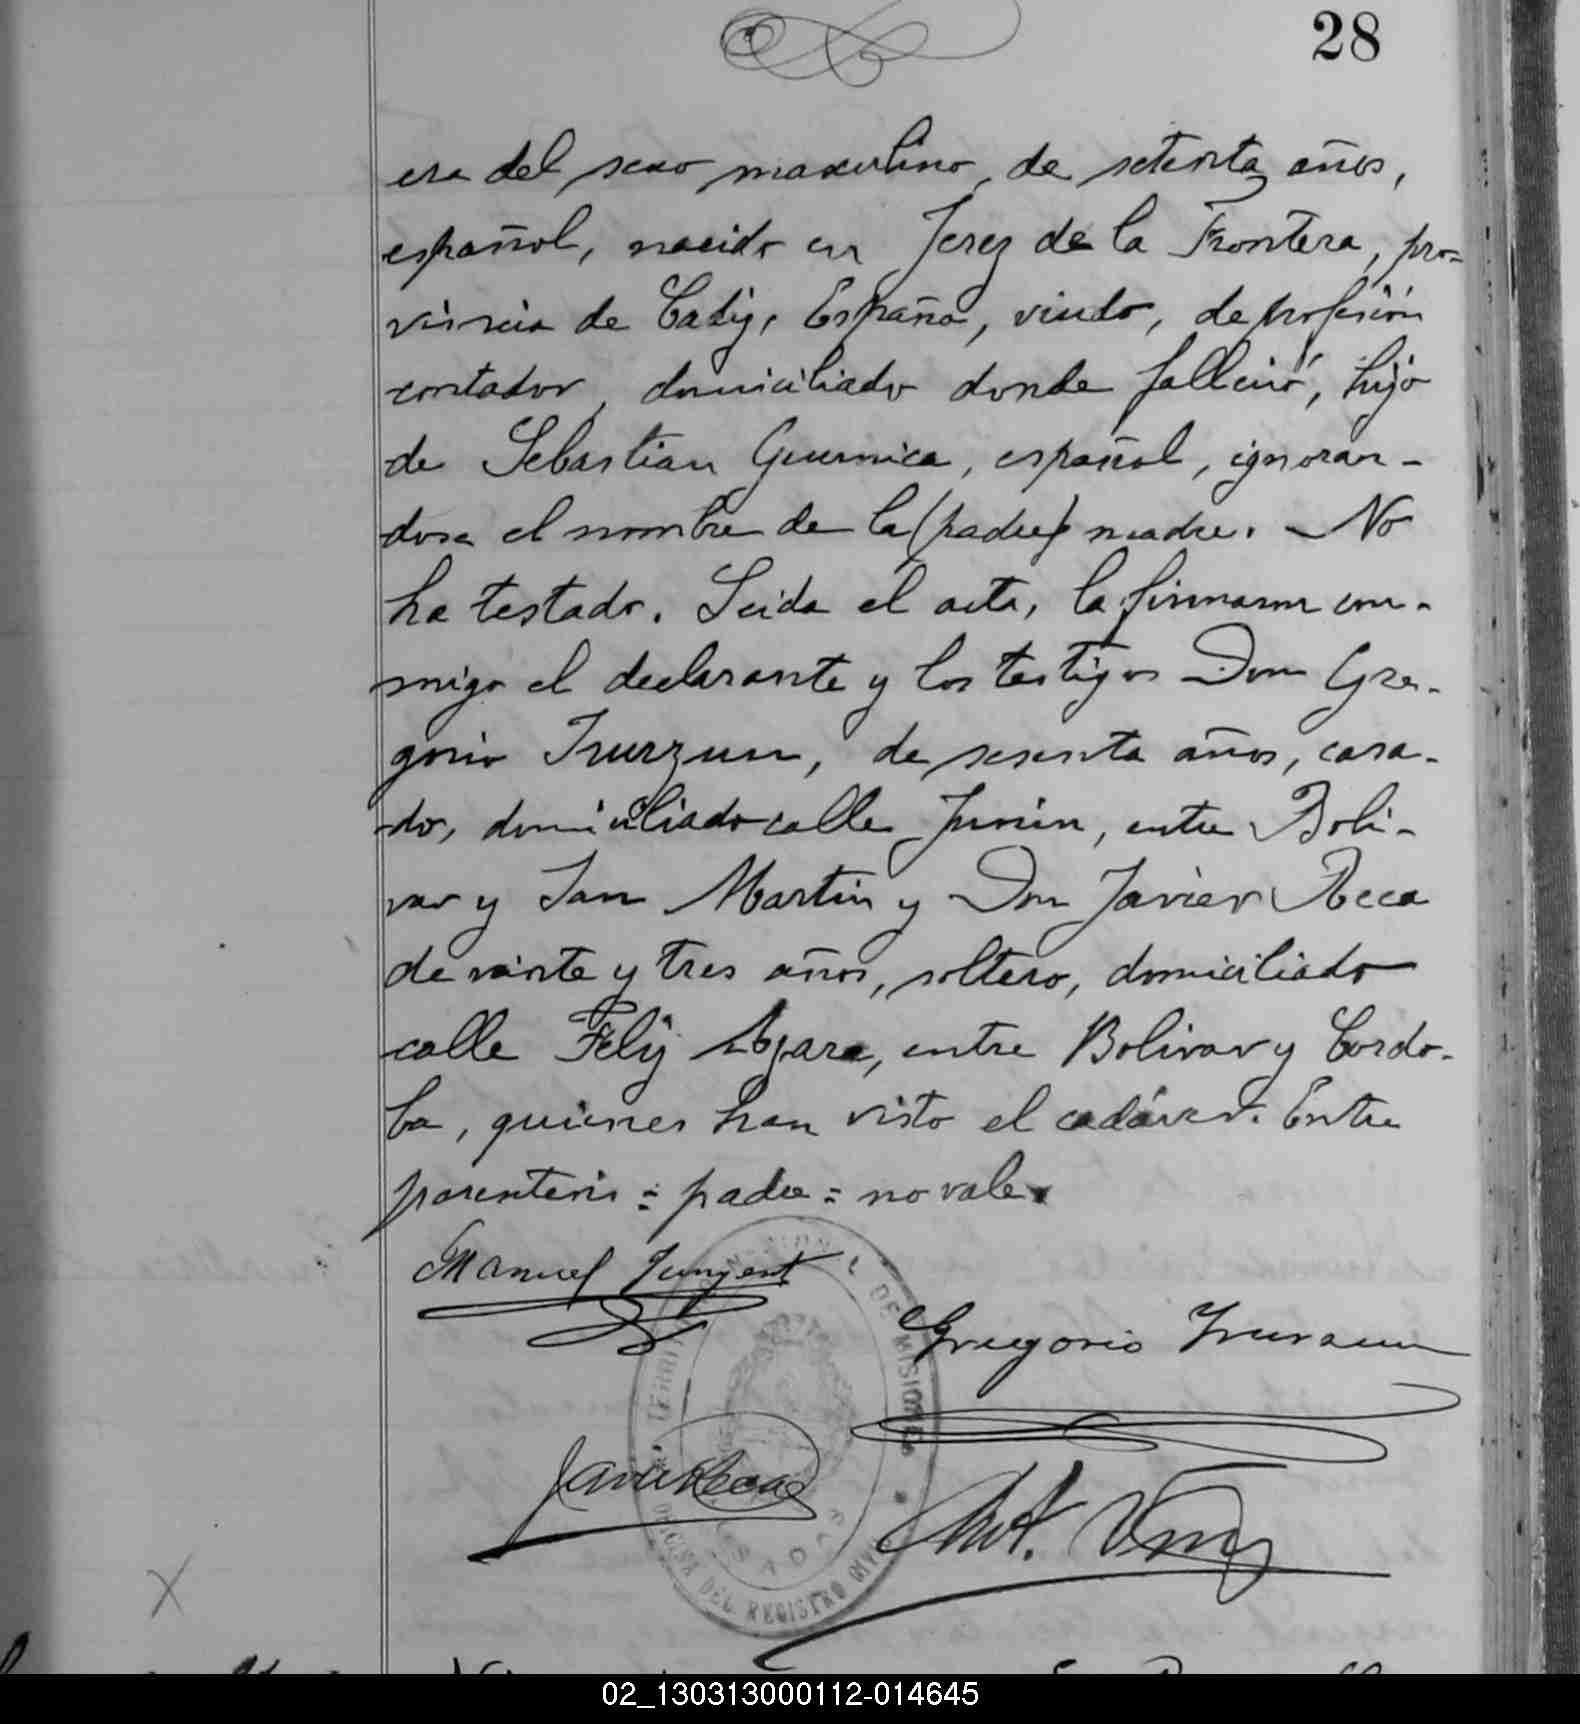 28
era del sexo masculino, de setenta años,
español, nacido en Jerez de la Frontera, pro-
vincia de Cadiz, España, viudo, de profesión
contador, domiciliado donde falleció, hijo
de Sebastian Guernica, español, ignoran-
dose el nombre de la (padre) madre. No
ha testado. Leida el acta, la firmaron con-
migo el declarante y los testigos Don Gre-
gorio Irurzun, de sesenta años, casa-
do, domiciliado calle Junin, entre Boli-
var y San Martin y Don Javier Reca
de veinte y tres años, soltero, domiciliado
calle Feliz Azara, entre Bolivar y Cordo-
ba, quienes han visto el cadáver. Entre
parentesis = padre = no vale.
Manuel Jungent
Gregorio Irurzun
Javier Reca
Ant.
DE MISIONES
OFICINA DEL REGISTRO CIVIL
POSADAS
02_130313000112-014645